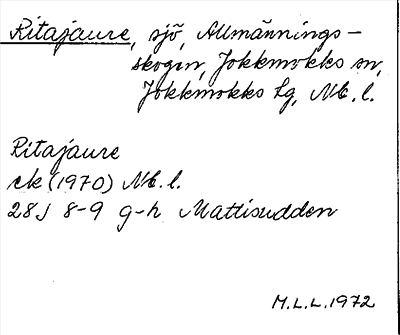 Ritajaure, sjö, Allmännings-
skogen, Jokkmokks sn,
Jokkmokks lg, Nb. l.
Ritajaure
ek (1970) Nb. l.
28J 8-9 g-h Mattisudden
M.L.L. 1972